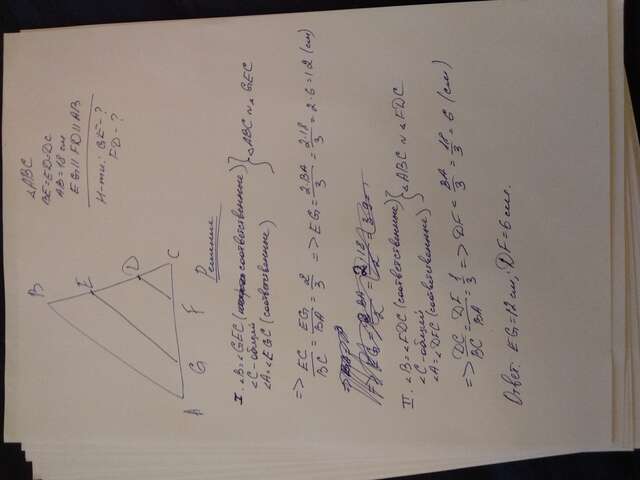 △ABC
BE=ED=DC
AB=18 см
EG || FD || AB
Н-ти: GE-?
FD-?
B
E
D
A
G
F
C
Решение
I. ∠B=∠GEC (соответственные)
∠C-общий
∠A=∠EGC (соответственные)
} △ABC ∾ △GEC
=> EC/BC = EG/BA = 2/3 => EG = 2·BA/3 = 2·18/3 = 2·6=12 (см)
II. ∠B=∠FDC (соответственные)
∠C-общий
∠A=∠DFC (соответственные)
} △ABC ∾ △FDC
=> DC/BC = DF/BA = 1/3 => DF = BA/3 = 18/3 = 6 (см)
Ответ: EG=12 см; DF=6 см.